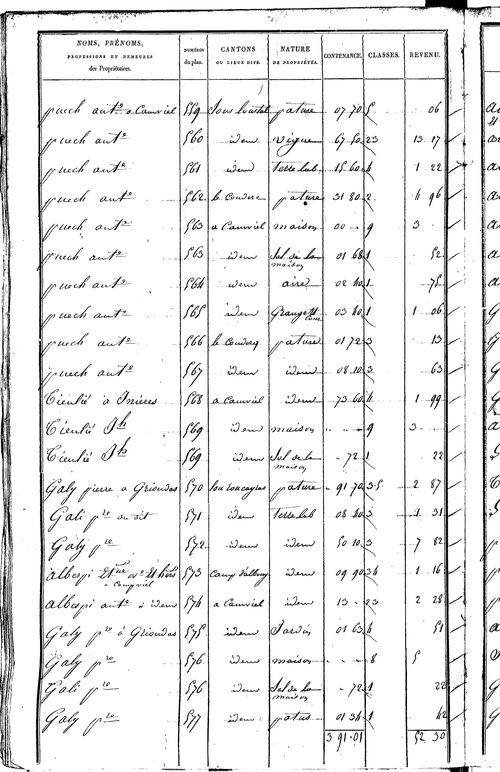 NOMS, PRÉNOMS, PROFESSIONS ET DEMEURES des Propriétaires. NUMÉROS du plan. CANTONS OU LIEUX DITS. NATURE DE PROPRIÉTÉS. CONTENANCE. CLASSES. REVENU.
puech anto a Camviel 559 pature 07 70 5 06
puech anto 560 idem vigne 67 50 23 13 17
puech anto 561 idem terre lab 15 60 4 1 22
puech anto 562 le Couderc pature 31 80 2 4 96
puech anto 563 a Camviel maison 00 -- 9 3
puech anto 563 idem Sol de la maison 01 68 1 52
puech anto 564 idem aire 02 40 1 75
puech anto 565 idem cour 03 40 1 1 06
puech anto 566 le Couderq pature 01 72 3 13
puech anto 567 idem idem 08 10 3 63
Cienlié à Inières 568 a Camviel idem 73 60 4 1 99
Cienlié Jh 569 idem maison - -- 9 3
Cienlié Jh 569 idem Sol de la maison - 72 1 22
Galy pierre a Grioudas 570 pature - 91 70 35 2 87
Gali pre du dit 571 idem terre lab 08 40 3 1 31
Galy pre 572 idem idem 50 10 3 7 82
573 Camp d'albouy idem 09 90 34 1 16
albespi anto à idem 574 a Camviel idem 13 - 23 2 28
Galy pre à Grioudas 575 idem Jardin 01 63 4 51
Galy pre 576 idem maison - - - 8 5
Gali pre 576 idem Sol de la maison - 72 1 22
Galy pre 577 idem patus 01 34 1 42
3 91 01 52 30